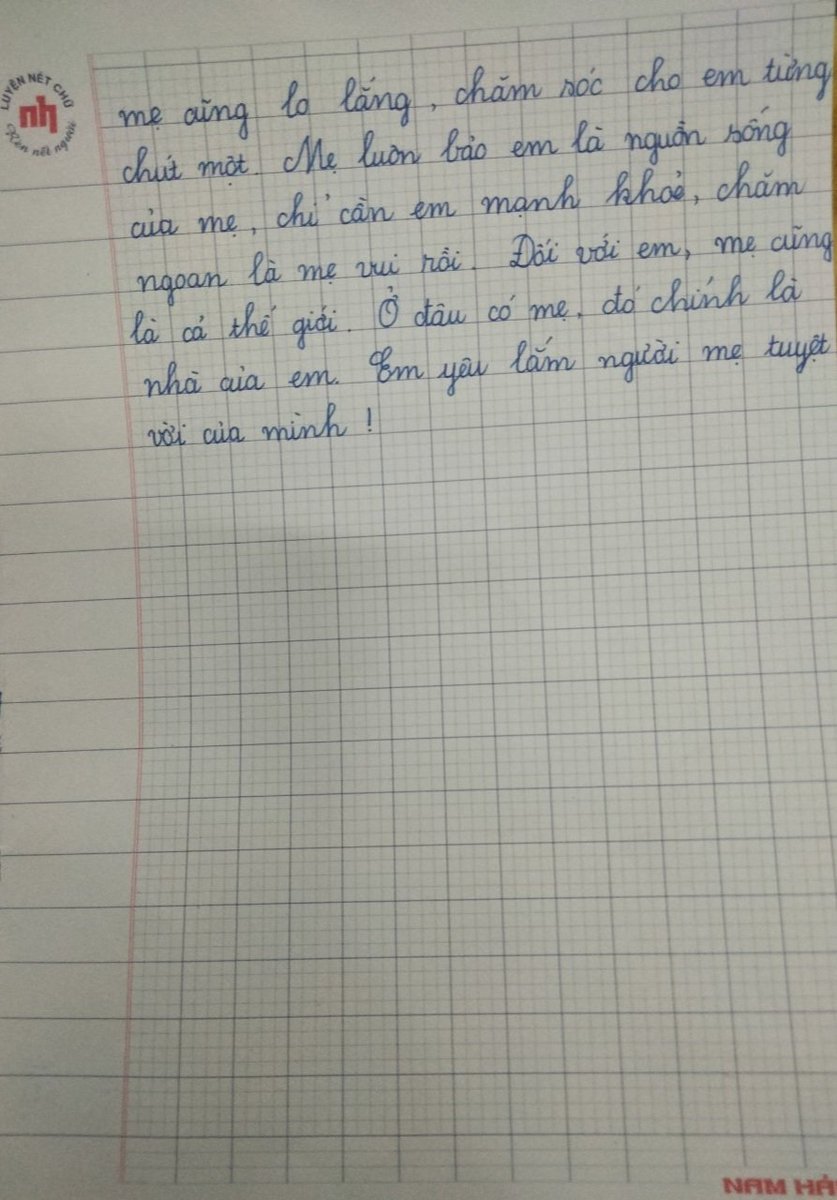 LUYỆN NÉT CHỮ
nh
Rèn nết người
mẹ cũng lo lắng, chăm sóc cho em từng
chút một. Mẹ luôn bảo em là nguồn sống
của mẹ, chỉ cần em mạnh khoẻ, chăm
ngoan là mẹ vui rồi. Đối với em, mẹ cũng
là cả thế giới. Ở đâu có mẹ, đó chính là
nhà của em. Em yêu lắm người mẹ tuyệt
vời của mình!
NAM HÀ